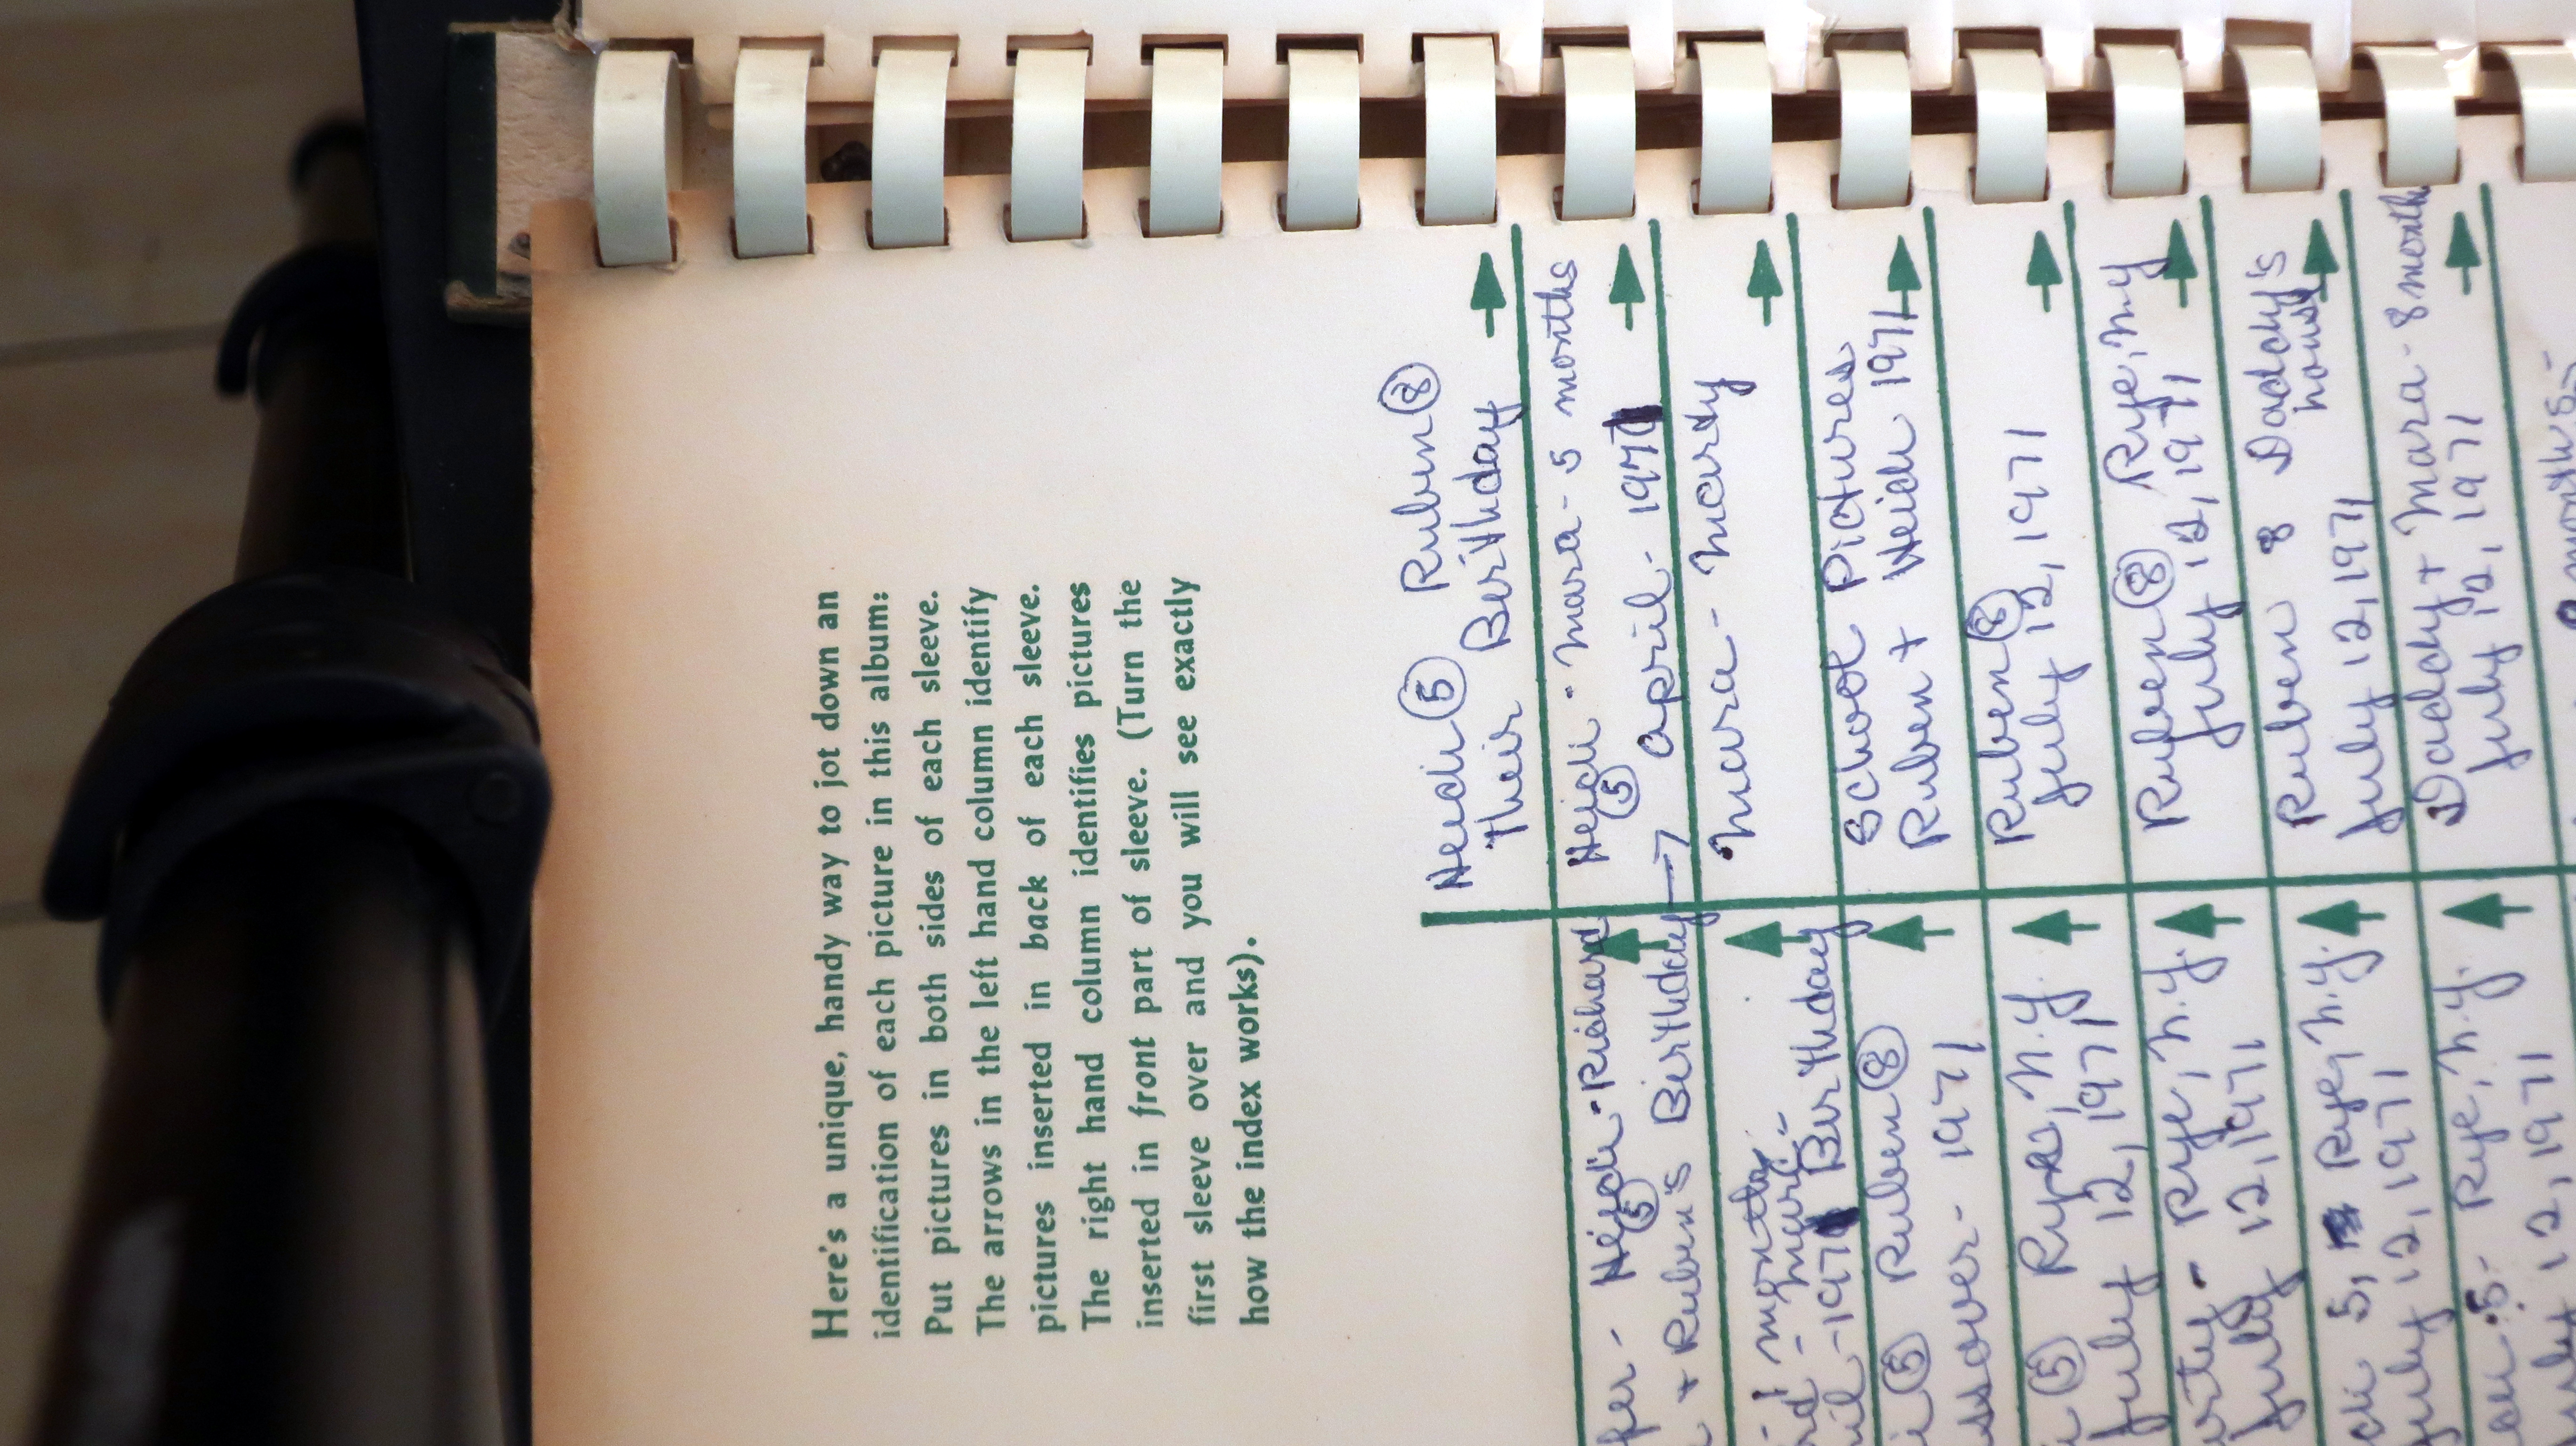 Here's a unique, handy way to jot down an
identification of each picture in this album:
Put pictures in both sides of each sleeve.
The arrows in the left hand column identify
pictures inserted in back of each sleeve.
The right hand column identifies pictures
inserted in front part of sleeve. (Turn the
first sleeve over and you will see exactly
how the index works).
fer - Heidi - Richard
5
+ Ruben's Birthday →
1 month
- Mara -
-1971 Birthday
5 Ruben 8
- 1971
5 Rye, N.Y.
July 12, 1971
- Rye, N.Y.
July 12, 1971
5, Rye, N.Y.
July 12, 1971
5 - Rye, N.Y.
12, 1971
Heidi 5 Ruben 8
Their Berithday
Heidi - Mara - 5 months
5
April - 1971
Mara - Marty
School Pictures
Ruben + Heidi 1971
Ruben 8
July 12, 1971
Ruben 8 Rye, NY
July 12, 1971
Ruben 8 Daddy's
house
July 12, 1971
Daddy + Mara - 8 months
July 12, 1971